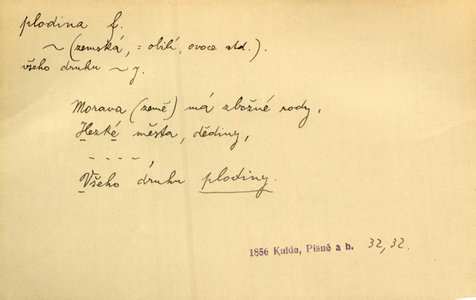 plodina f.
~ (zemská, = obilí, ovoce atd.).
všeho druhu ~ y.
Morava (země) má zbožné rody,
Hezké města, dědiny,
- - - - ,
Všeho druhu plodiny.
1856 Kulda, Písně a b. 32, 32.